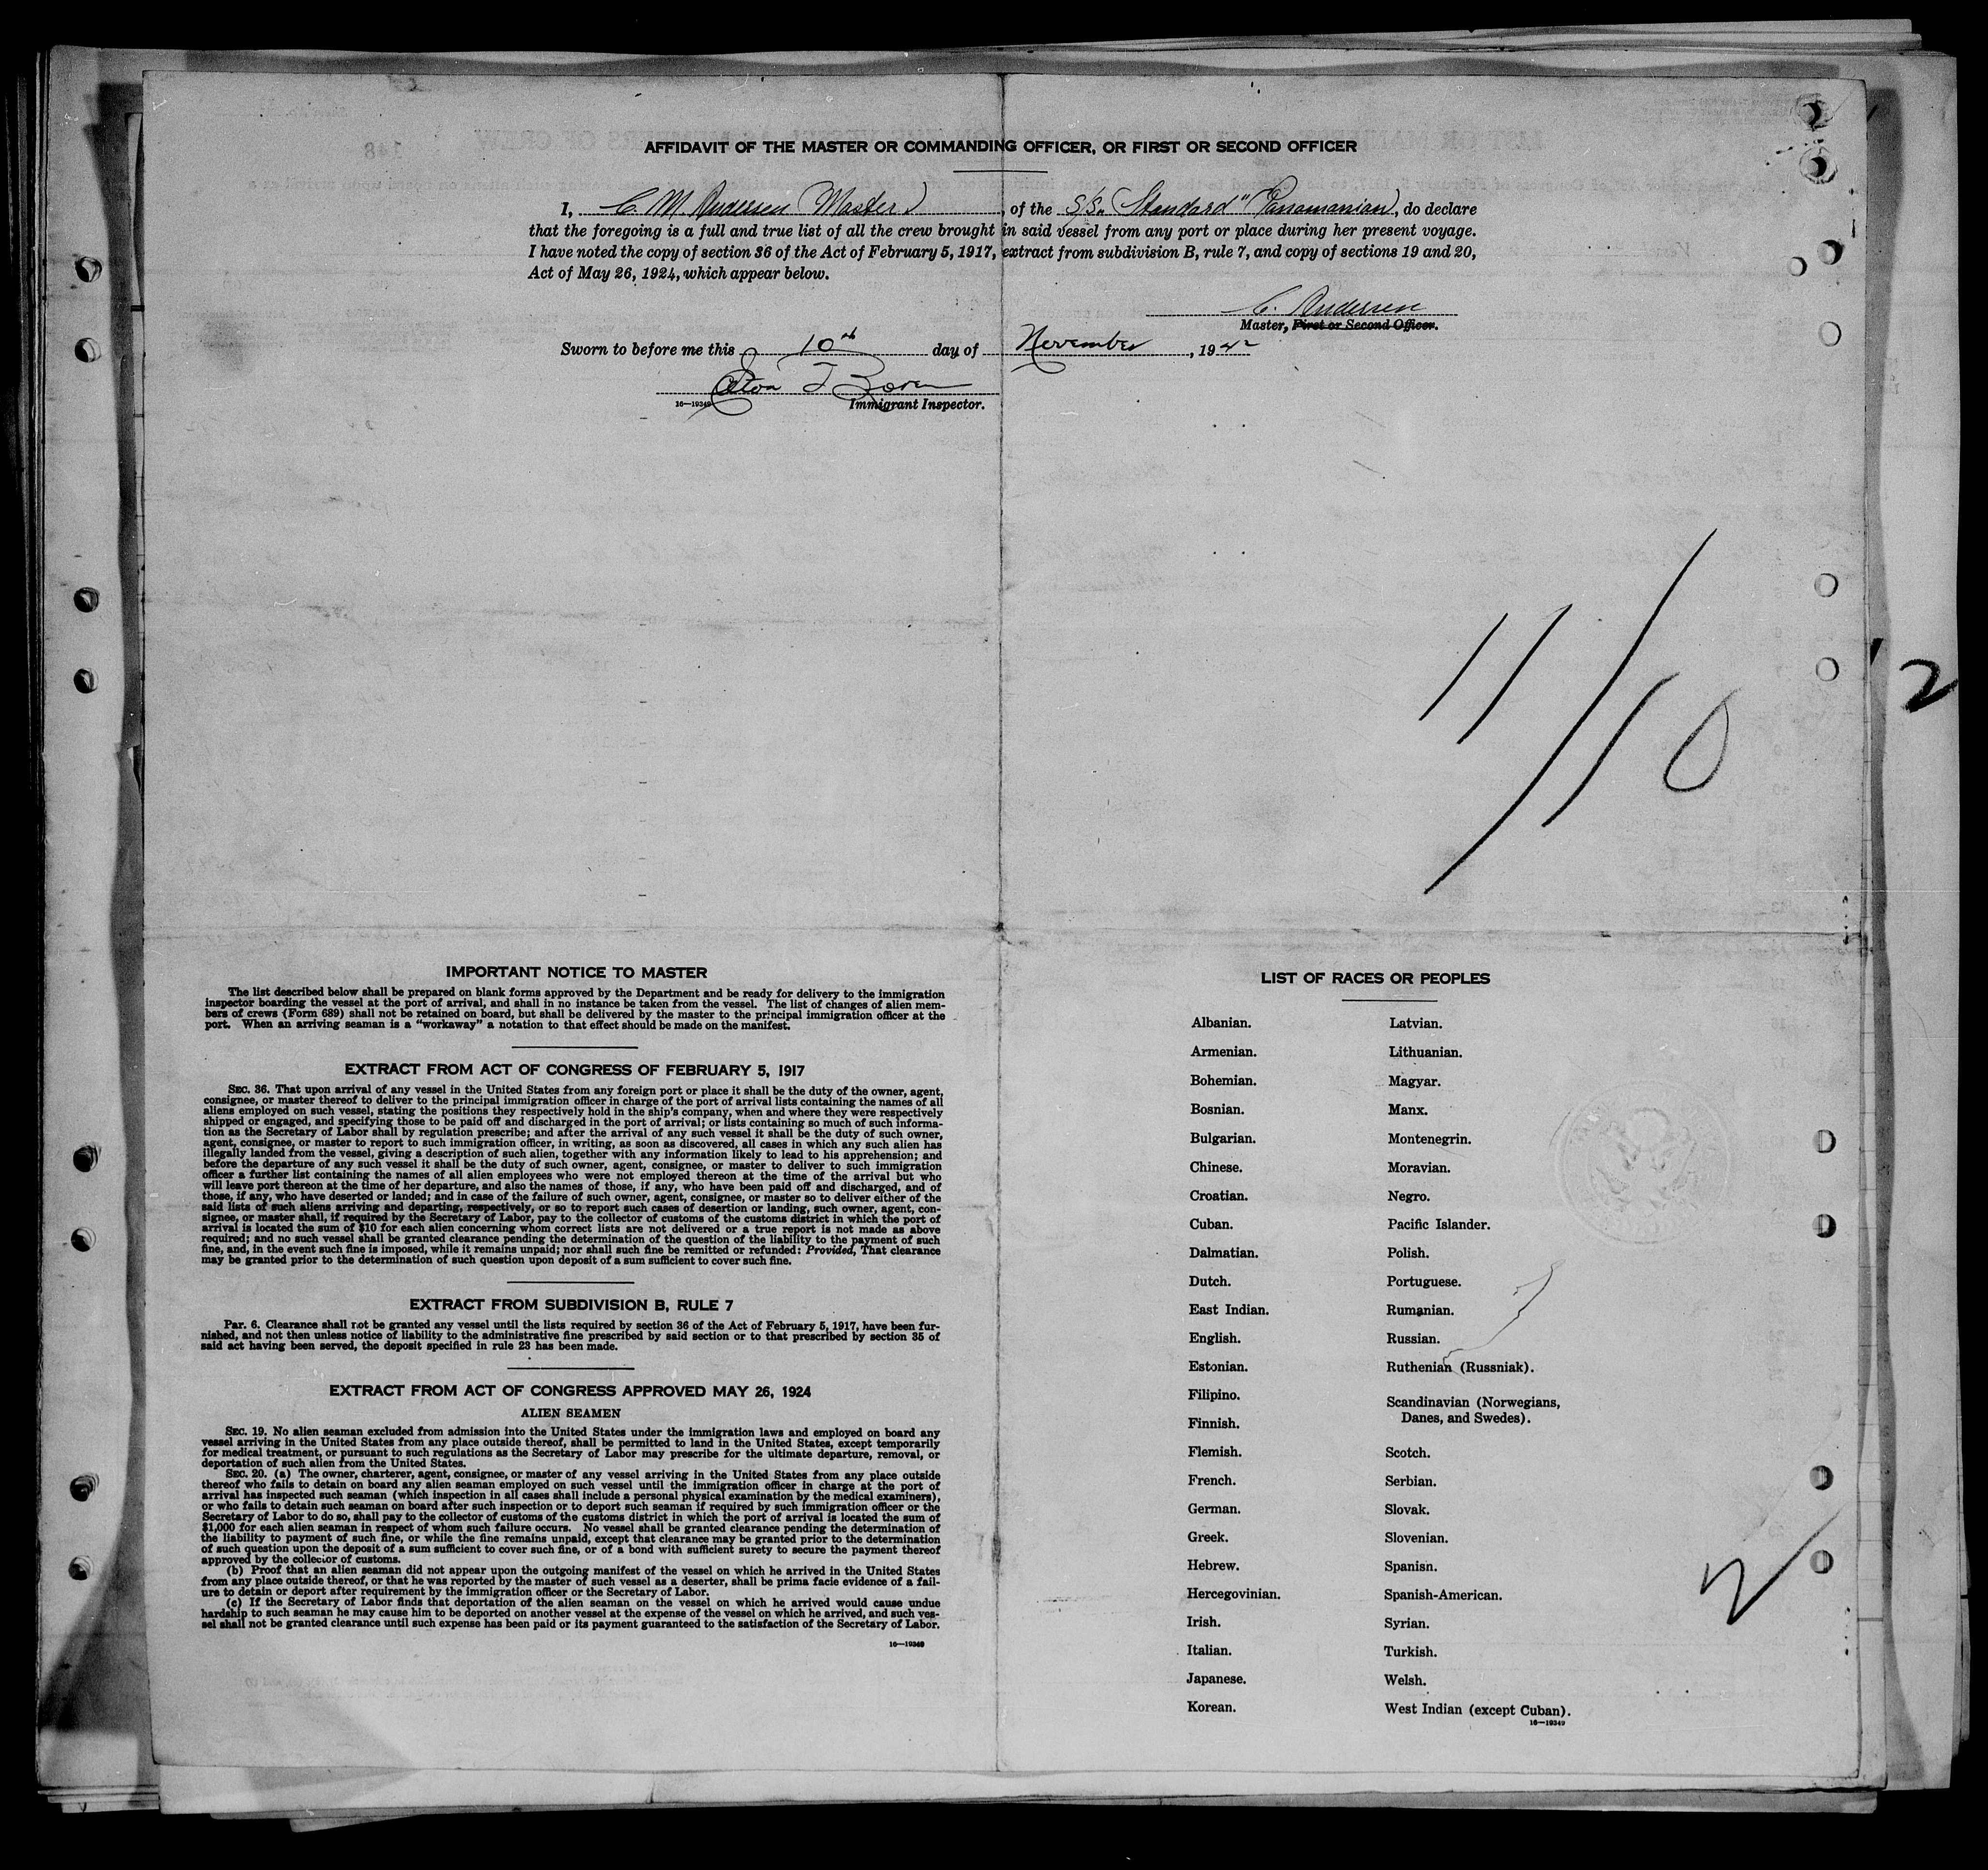 AFFIDAVIT OF THE MASTER OR COMMANDING OFFICER, OR FIRST OR SECOND OFFICER
I, C. M. Andersen Master, of the S/S. "Standard" Panamanian, do declare
that the foregoing is a full and true list of all the crew brought in said vessel from any port or place during her present voyage.
I have noted the copy of section 36 of the Act of February 5, 1917, extract from subdivision B, rule 7, and copy of sections 19 and 20,
Act of May 26, 1924, which appear below.
C. Andersen
Master, First or Second Officer.
Sworn to before me this 10th day of November, 1942
Immigrant Inspector.
16—19349
11/10
2
IMPORTANT NOTICE TO MASTER
The list described below shall be prepared on blank forms approved by the Department and be ready for delivery to the immigration
inspector boarding the vessel at the port of arrival, and shall in no instance be taken from the vessel. The list of changes of alien mem-
bers of crews (Form 689) shall not be retained on board, but shall be delivered by the master to the principal immigration officer at the
port. When an arriving seaman is a "workaway" a notation to that effect should be made on the manifest.
EXTRACT FROM ACT OF CONGRESS OF FEBRUARY 5, 1917
SEC. 36. That upon arrival of any vessel in the United States from any foreign port or place it shall be the duty of the owner, agent,
consignee, or master thereof to deliver to the principal immigration officer in charge of the port of arrival lists containing the names of all
aliens employed on such vessel, stating the positions they respectively hold in the ship's company, when and where they were respectively
shipped or engaged, and specifying those to be paid off and discharged in the port of arrival; or lists containing so much of such informa-
tion as the Secretary of Labor shall by regulation prescribe; and after the arrival of any such vessel it shall be the duty of such owner,
agent, consignee, or master to report to such immigration officer, in writing, as soon as discovered, all cases in which any such alien has
illegally landed from the vessel, giving a description of such alien, together with any information likely to lead to his apprehension; and
before the departure of any such vessel it shall be the duty of such owner, agent, consignee, or master to deliver to such immigration
officer a further list containing the names of all alien employees who were not employed thereon at the time of the arrival but who
will leave port thereon at the time of her departure, and also the names of those, if any, who have been paid off and discharged, and of
those, if any, who have deserted or landed; and in case of the failure of such owner, agent, consignee, or master so to deliver either of the
said lists of such aliens arriving and departing, respectively, or so to report such cases of desertion or landing, such owner, agent, con-
signee, or master shall, if required by the Secretary of Labor, pay to the collector of customs of the customs district in which the port of
arrival is located the sum of $10 for each alien concerning whom correct lists are not delivered or a true report is not made as above
required; and no such vessel shall be granted clearance pending the determination of the question of the liability to the payment of such
fine, and, in the event such fine is imposed, while it remains unpaid; nor shall such fine be remitted or refunded: Provided, That clearance
may be granted prior to the determination of such question upon deposit of a sum sufficient to cover such fine.
EXTRACT FROM SUBDIVISION B, RULE 7
Par. 6. Clearance shall not be granted any vessel until the lists required by section 36 of the Act of February 5, 1917, have been fur-
nished, and not then unless notice of liability to the administrative fine prescribed by said section or to that prescribed by section 35 of
said act having been served, the deposit specified in rule 23 has been made.
EXTRACT FROM ACT OF CONGRESS APPROVED MAY 26, 1924
ALIEN SEAMEN
SEC. 19. No alien seaman excluded from admission into the United States under the immigration laws and employed on board any
vessel arriving in the United States from any place outside thereof, shall be permitted to land in the United States, except temporarily
for medical treatment, or pursuant to such regulations as the Secretary of Labor may prescribe for the ultimate departure, removal, or
deportation of such alien from the United States.
SEC. 20. (a) The owner, charterer, agent, consignee, or master of any vessel arriving in the United States from any place outside
thereof who fails to detain on board any alien seaman employed on such vessel until the immigration officer in charge at the port of
arrival has inspected such seaman (which inspection in all cases shall include a personal physical examination by the medical examiners),
or who fails to detain such seaman on board after such inspection or to deport such seaman if required by such immigration officer or the
Secretary of Labor to do so, shall pay to the collector of customs of the customs district in which the port of arrival is located the sum of
$1,000 for each alien seaman in respect of whom such failure occurs. No vessel shall be granted clearance pending the determination of
the liability to payment of such fine, or while the fine remains unpaid, except that clearance may be granted prior to the determination
of such question upon the deposit of a sum sufficient to cover such fine, or of a bond with sufficient surety to secure the payment thereof
approved by the collector of customs.
(b) Proof that an alien seaman did not appear upon the outgoing manifest of the vessel on which he arrived in the United States
from any place outside thereof, or that he was reported by the master of such vessel as a deserter, shall be prima facie evidence of a fail-
ure to detain or deport after requirement by the immigration officer or the Secretary of Labor.
(c) If the Secretary of Labor finds that deportation of the alien seaman on the vessel on which he arrived would cause undue
hardship to such seaman he may cause him to be deported on another vessel at the expense of the vessel on which he arrived, and such ves-
sel shall not be granted clearance until such expense has been paid or its payment guaranteed to the satisfaction of the Secretary of Labor.
16—19349
LIST OF RACES OR PEOPLES
Albanian.
Armenian.
Bohemian.
Bosnian.
Bulgarian.
Chinese.
Croatian.
Cuban.
Dalmatian.
Dutch.
East Indian.
English.
Estonian.
Filipino.
Finnish.
Flemish.
French.
German.
Greek.
Hebrew.
Hercegovinian.
Irish.
Italian.
Japanese.
Korean.
Latvian.
Lithuanian.
Magyar.
Manx.
Montenegrin.
Moravian.
Negro.
Pacific Islander.
Polish.
Portuguese.
Rumanian.
Russian.
Ruthenian (Russniak).
Scandinavian (Norwegians,
Danes, and Swedes).
Scotch.
Serbian.
Slovak.
Slovenian.
Spanish.
Spanish-American.
Syrian.
Turkish.
Welsh.
West Indian (except Cuban).
16—19349
2